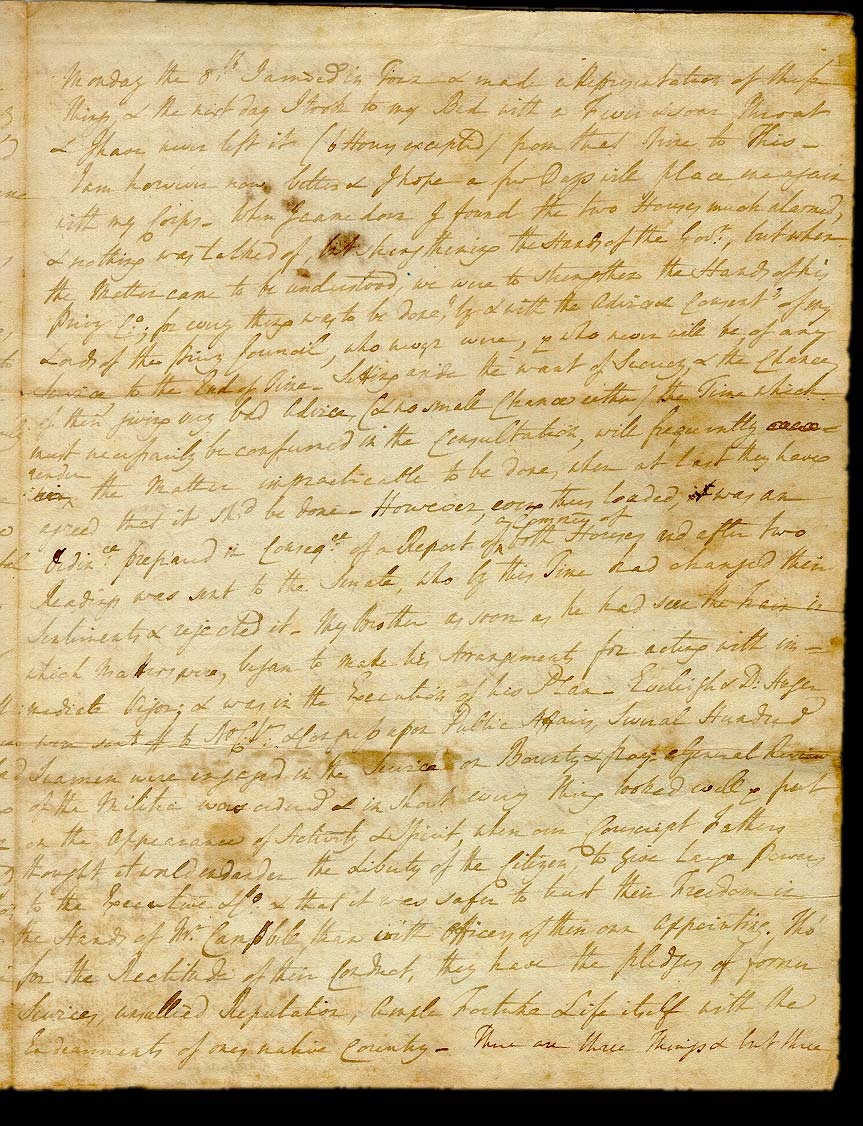 Monday the 8.th I arrived in Town & made a Representation of these
things, & the next day I took to my Bed with a Fever & sour Throat
& I have never left it (6 Hours excepted) from that time to This –
I am however now better & I hope a few Days will place me again
with my Corps – When I came down I found the two Houses much alarmed,
& nothing was talked of, but strengthening the Hands of the Gov.r, but when
the Matter came to be understood, we were to strengthen the Hands of his
Privy C.o, for every thing was to be done, by & with the Advice & Consent of my
Lords of the Privy Council, who never were, & who never will be of any
Service to the End of Time – Setting aside the want of Secrecy, & the Chance
of their giving very bad Advice, (& no small Chance either) the Time which
must necessarily be consumed in the Consultation, will frequently
render the Matter impracticable to be done, when at last they have
agreed that it sh.d be done – However, even thus loaded, it was an
Ordin.ce prepared in Conseq.ce of a Report of a Committee of both Houses and after two
Readings was sent to the Senate, who by this Time had changed their
Sentiments & rejected it – My Brother as soon as he had seen the Train in
which Matters were, began to make his Arrangements for acting with im=
mediate Vigor; & was in the Execution of his Plan – Eveleigh & D. Huger
were sent off to No. C. upon Public Affairs, Several Hundred
Seamen were engaged in the Service on Bounty & pay; a General Review
of the Militia was ordered & in short every thing looked well & put
on the Appearance of Activity & Spirit, when our Conscript Fathers
thought it would endander the Liberty of the Citizen, to give Large Powers
to the Executive & that it was safer to trust their Freedom in
the Hands of M.r Campbell, than with Officers of their own appointing. Tho'
for the Rectitude of their Conduct, they have the pledges of former
Services, unsullied Reputation, ample Fortune & Life itself with the
Endearments of ones native Country – There are three Things & but three